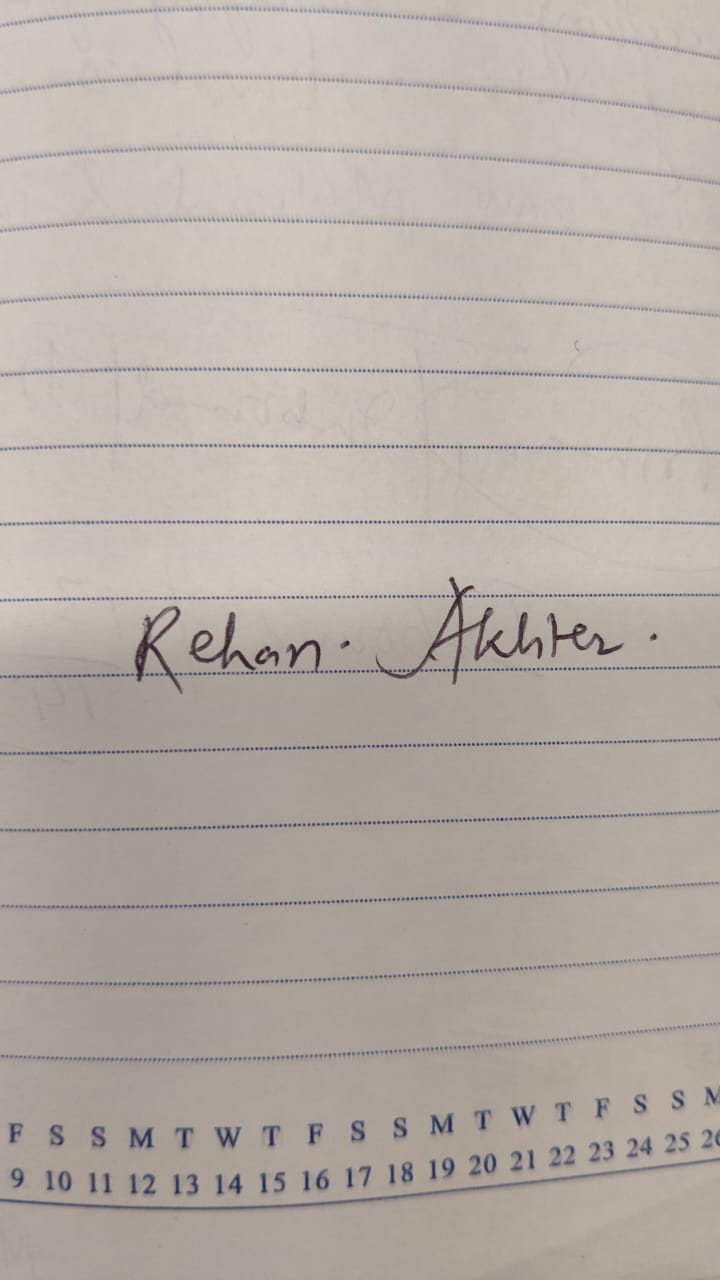 Rehan. Akhter.
F S S M T W T F S S M T W T F S S M
9 10 11 12 13 14 15 16 17 18 19 20 21 22 23 24 25 26